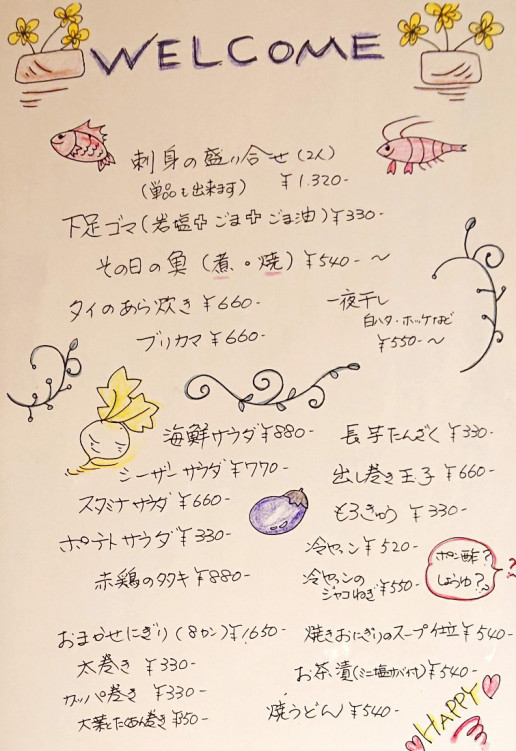 WELCOME
刺身の盛り合せ(2人)
(単品も出来ます) ¥1.320-
下足ゴマ(岩塩✚ごま✚ごま油)¥330-
その日の魚(煮・焼)¥540-〜
タイのあら炊き ¥660-
一夜干し
白ハタ・ホッケなど
¥550-〜
ブリカマ ¥660-
海鮮サラダ¥880-
シーザーサラダ¥770-
スタミナサラダ ¥660-
ポテトサラダ¥330-
赤鶏のタタキ¥880-
長芋たんざく ¥330-
出し巻き玉子 ¥660-
もろきゅう ¥330-
冷ヤッコ ¥520-
冷ヤッコの
ジャコねぎ ¥550-
ポン酢?
しょうゆ?
?
おまかせにぎり(8カン)¥1650-
太巻き ¥330-
カッパ巻き ¥330-
大葉とたぁめん巻き
焼きおにぎりのスープ仕立 ¥540-
お茶漬(ミニ塩サバ付)¥540-
焼うどん ¥540-
HAPPY